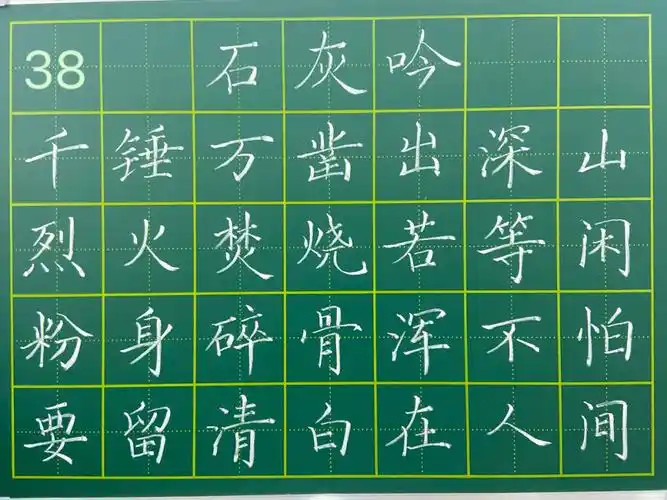 38 石灰吟
千锤万凿出深山
烈火焚烧若等闲
粉身碎骨浑不怕
要留清白在人间